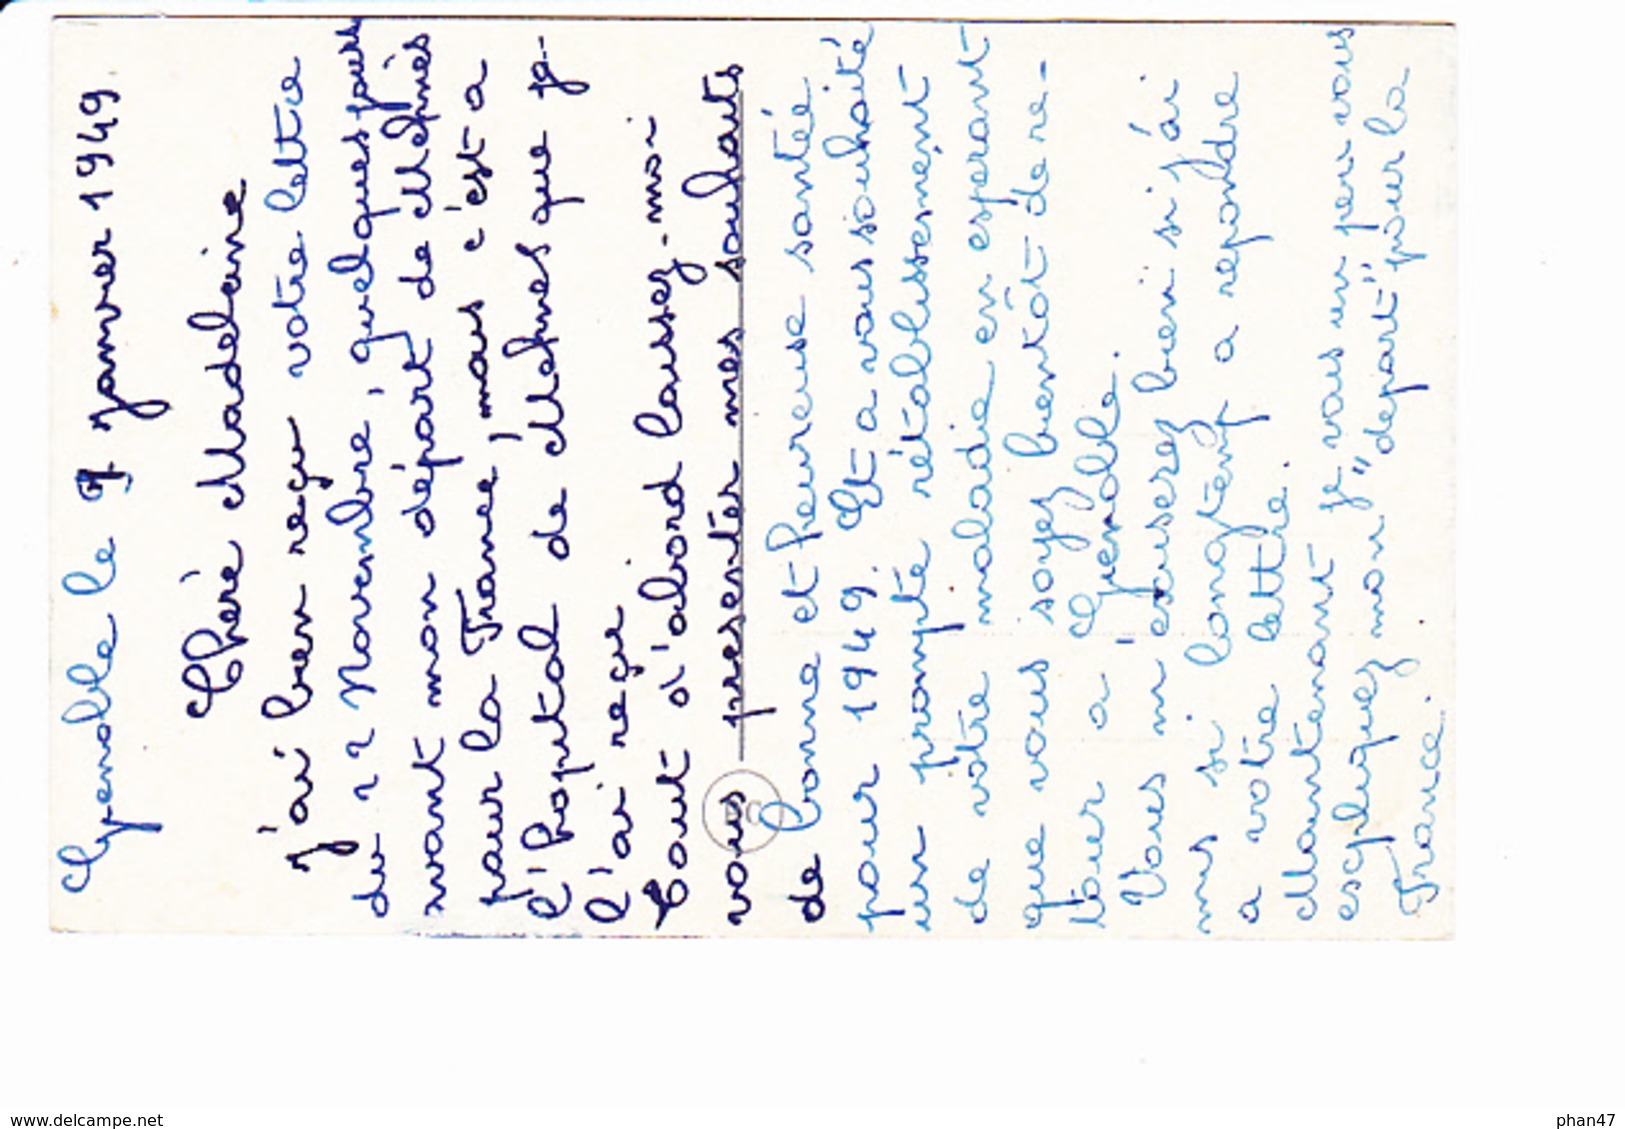 Grenoble le 9 janvier 1949
Cheré Madeleine
J'ai bien reçu votre lettre
du 22 Novembre, quelques jours
avant mon départ de Meknès
pour la France, mais c'est a
l'hopital de Meknes que je
l'ai reçu
Tout d'abord laissez-moi
vous presenter mes souhaits
de bonne et heureuse santée
pour 1949. Et a vous souhaité
un prompte rétablissement
de vôtre maladie en esperant
que vous soyez bientôt de re-
tour a Grenoble.
Vous m'éxcuserez bien si j'ai
mis si longtemp a repondre
a votre lettre.
Maintenant je vais un peu vous
expliquez mon "depart" pour la
France.
www.delcampe.net
phan47